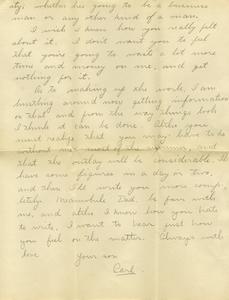 ity; whether he's going to be a business
man or any other kind of a man.
I wish I knew how you really felt
about it. I don't want you to feel
that you're going to waste a lot more
time and money on me, and get
nothing for it.
As to making up the work, I am
hustling around now getting information
on that and from the way things look
I think it can be done. Altho you
must realize that you may have to be
without me most of the summer, and
that the outlay will be considerable. I'll
have some figures in a day or two,
and then I'll write you more comp-
letely. Meanwhile Dad, be fair with
me, and altho I know how you hate
to write, I want to hear just how
you feel on the matter. Always with
love Your son
Carl